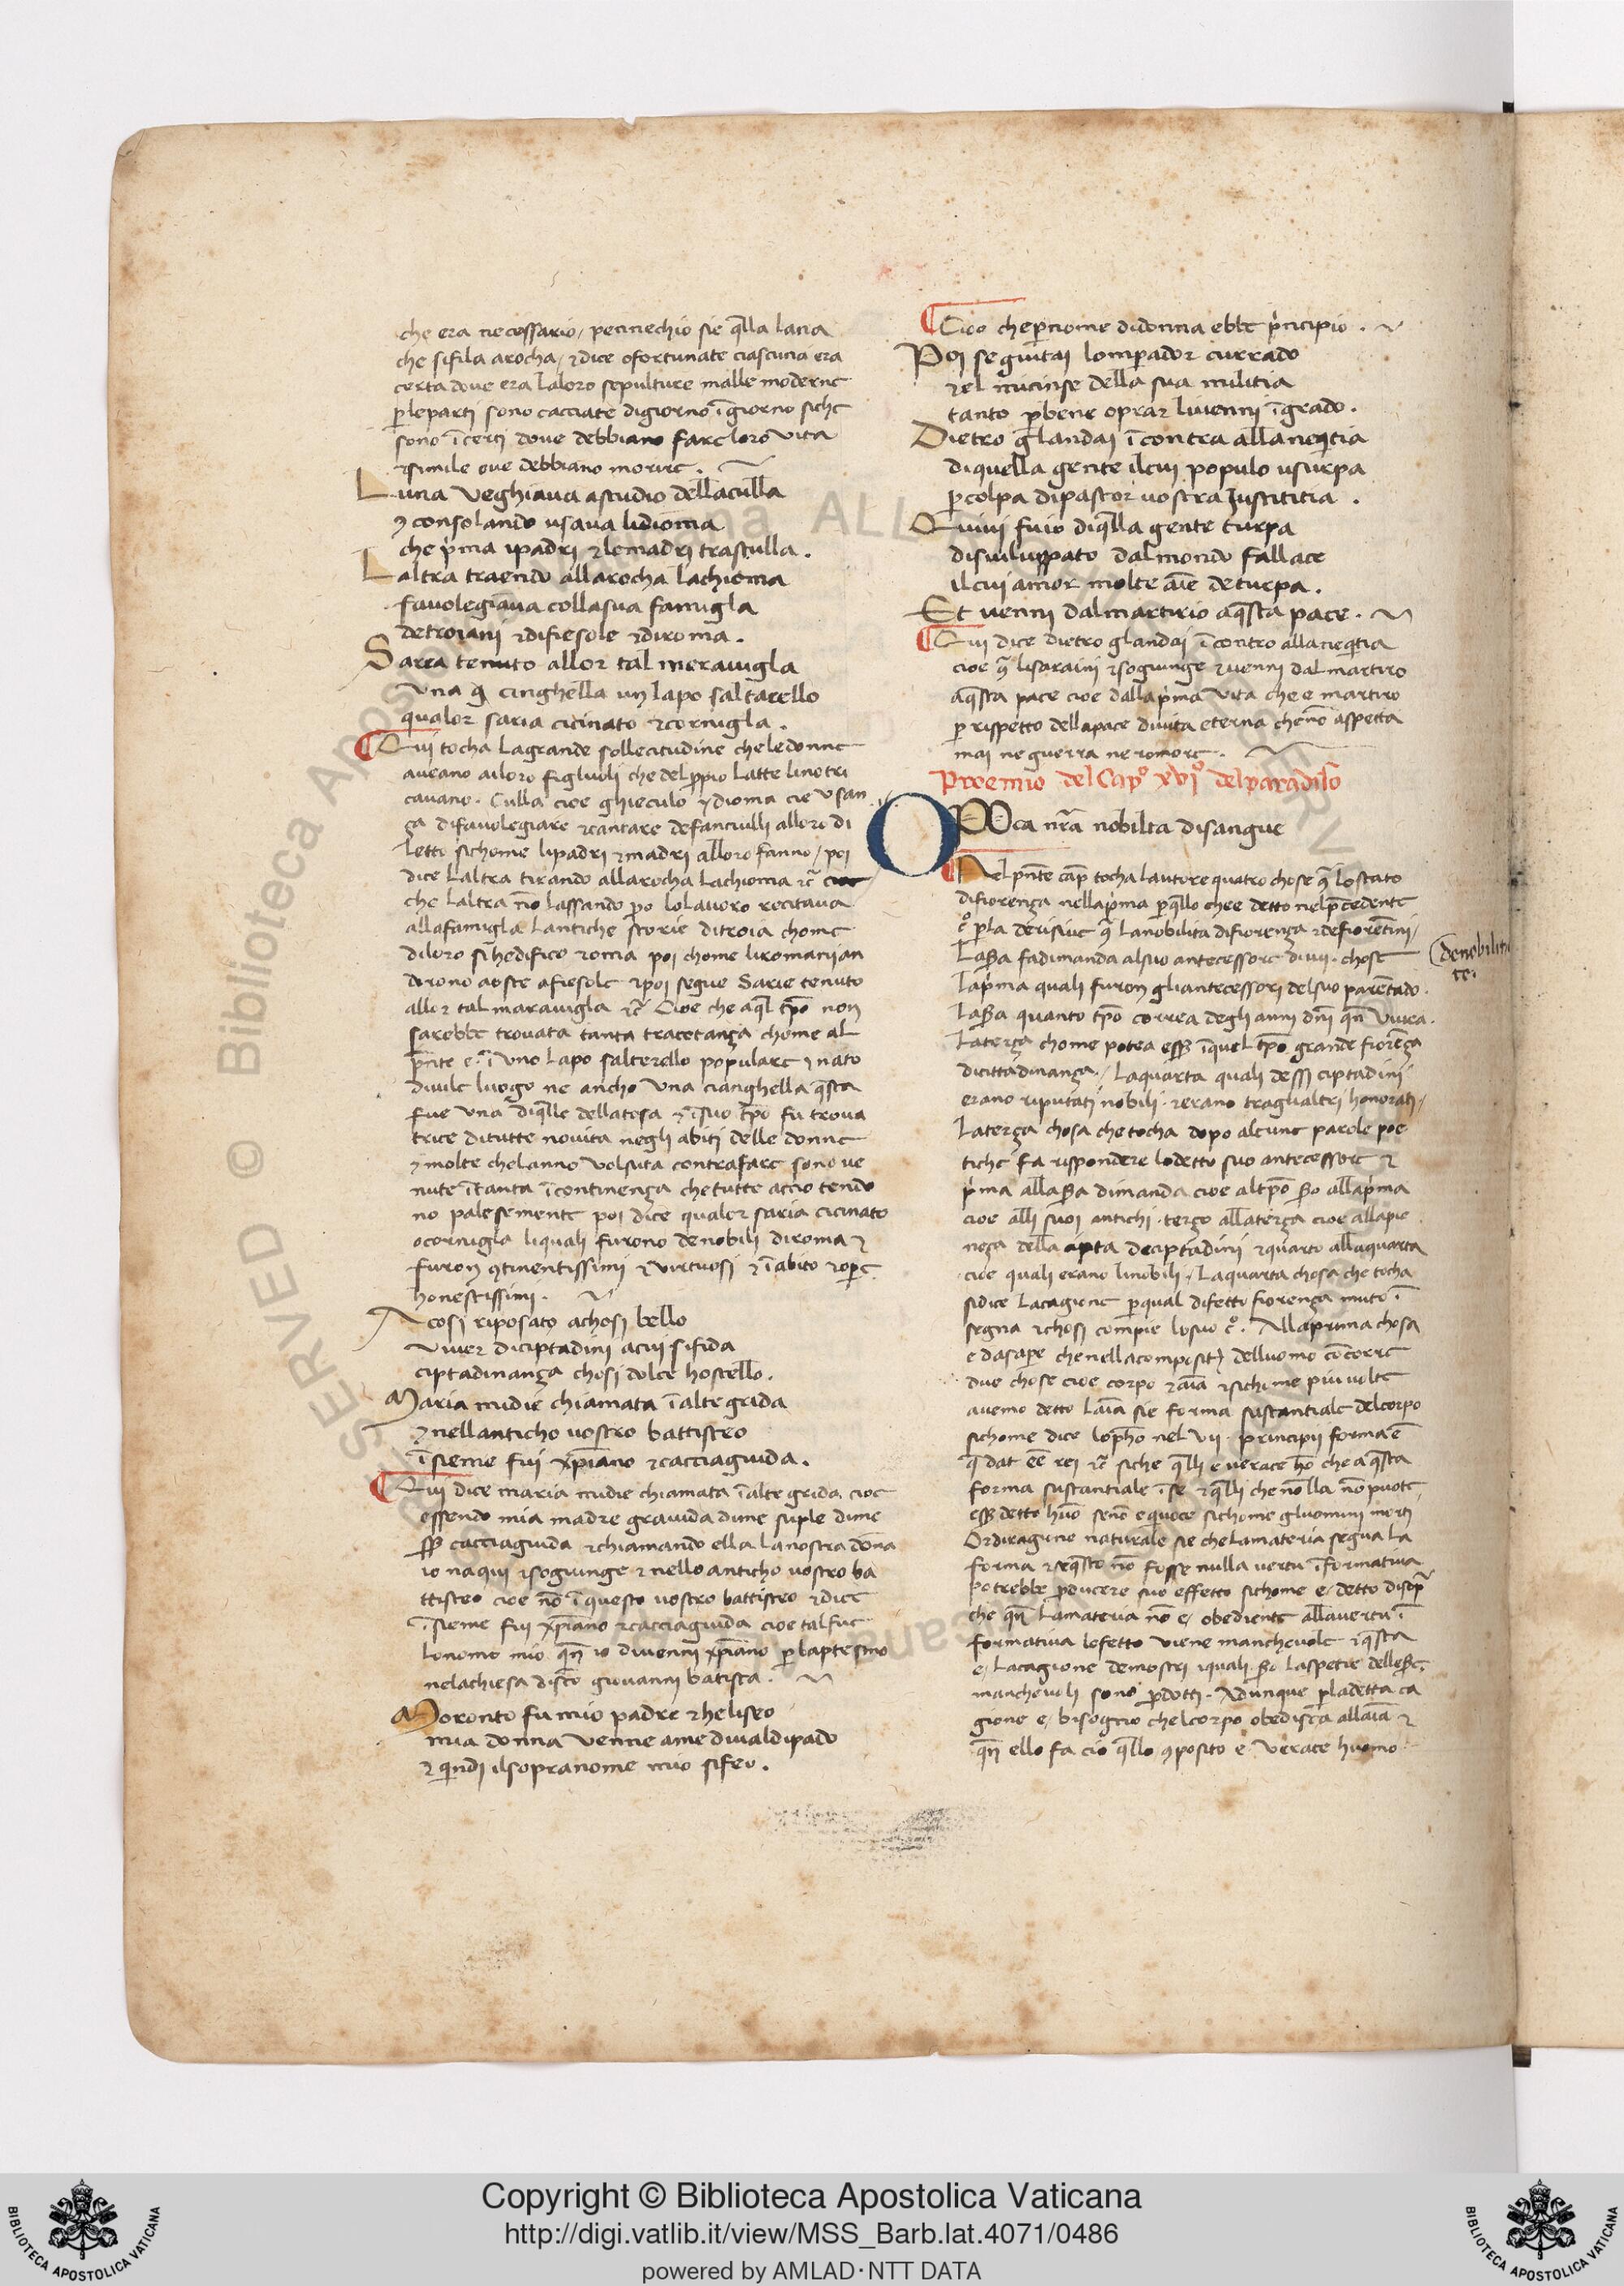 che era necessario / pennechio sie q̄lla lana
che si fila a rocha / ⁊ dice o fortunate ciascuna era
certa dove era la loro sepulture ma lle moderne
ꝑ le parti sono cacciate di giorno ī giorno siche
sono īcerti dove debbiano fare loro vita
⁊ simile ove debbiano morire .
Luna veghiava a studio della culla
⁊ consolando usava lidioma
che p̍ma i padri ⁊ le madri trastulla .
Laltra traendo alla rocha la chioma
favolegiava colla sua famigla
de troiani ⁊ di fiesole ⁊ di roma .
Sarea tenuto allor tal meravigla
una cinghella un lapo saltarello
qualor saria cicinato ⁊ cornigla .
Qui tocha la grande sollecitudine che le donne
aveano a i loro figluoli che del ꝓpio latte li notri
cavano . Culla cioe ghieculo ydioma cie usan
ça di favolegiare ⁊ cantare de fanciulli alloro di
letto sichome li padri ⁊ madri alloro fanno / poi
dice laltra tirando alla rocha la chioma ⁊c̄
che laltra nō lassando ꝑo lo lavoro recitava
alla famigla lantiche storie di troia chome
di loro si hedifico roma poi chome li romani an
dorono a oste a fiesole ⁊ poi segue Sarie tenuto
allor tal maravigla ⁊c̄ Cioe che a q̄l tp̄o non
sarebbe trovata tanta tracotança chome al
p̄nte e . ī uno lapo salterello populare ⁊ nato
di vile luogo ne ancho una cianghella q̄sta
fue una di q̄lle della tosa ⁊ ī suo tp̄o fu trova
trice di tutte novita negli abiti delle donne
⁊ molte chelanno volsuta contrafare sono ve
nute ī tanta īcontinença che tutte accio tendo
no palesemente poi dice qualor saria cicinato
o cornigla li quali furono de nobili di roma ⁊
furon ꝯtinentissimi ⁊ virtuosi ⁊ ī abito ⁊ oꝑe
honestissimi .
A cosi riposato a chosi bello
viver di ciptadini a cui si fida
ciptadinança chosi dolce hostello .
Maria mi die chiamata ī alte grida
⁊ nell anticho vostro battisteo
īsieme fui xp̄iano ⁊ cacciaguida .
Qui dice maria mi die chiamata ī alte grida cioe
essendo mia madre gravida di me
cacciaguida ⁊ chiamando ella la nostra dōna
io naqui ⁊ sogiunge ⁊ nello anticho vostro ba
ttisteo cioe nō ī questo vostro battisteo ⁊ dice
īsieme fui xp̄iano ⁊ cacciaguida cioe tal fue
lo nome mio qn̄ io divenni xp̄iano ꝑ baptesmo
ne la chiesa di sc̄o giovanni batista .
Moronto fu mio padre ⁊ heliseo
mia donna venne a me di val di pado
⁊ quindi il sopranome mio si feo .
Cioo che ꝑ nome di donna ebbe p̍ncipio .
Poi seguitai lomperador currado
⁊ el mi cinse della sua militia
tanto ꝑ bene oprar li venni ī grado .
Dietro gl andai īcontra alla neq̍tia
di quella gente il cui populo usurpa
ꝑ colpa di pastor vostra iustititia .
Quivi fu io di q̄lla gente turpa
disviluppato dal mondo fallace
il cui amor molte aīe deturpa .
Et venni dal martirio a q̄sta pace .
Qui dice dietro gl andai īcontro alla neq̍tia
cioe li saraini ⁊ sogiunge ⁊ venni dal martiro
a q̄sta pace cioe dalla p̍ma vita che e martiro
ꝑ rispetto della pace di vita eterna che nō aspetta
mai ne guerra ne romore .
Proemio del Capº xviº del paradiso
O Poca nr̄a nobilta di sangue
Nel pn̄te cap̄ tocha lautore quatro chose lo stato
di fiorença nella p̍ma ꝑ q̄llo che e detto nel p̄cedente
cº ꝑ la derisive la nobilita di fiorença ⁊ de fiorentini /
La fa dimanda al suo antecessore di iiii . chose
(de nobilita
te.
la p̍ma quali furon gli antecessori del suo parentado .
La quanto tp̄o correa degli anni dn̄i qn̄ vivea .
La terça chome potea ī quel tp̄o grande fiorença
di cittadinança / La quarta quali dessi ciptadini
erano riputati nobili . ⁊ erano tragli altri honorati /
La terça chosa che tocha dopo alcune parole poe
tiche fa rispondere lo detto suo antecessore ⁊
p̍ma alla dimanda cioe al tp̄o alla p̍ma
cioe alli suoi antichi . terço alla terça cioe alla pie
neça della cipta de ciptadini ⁊ quarto alla quarta
cioe quali erano li nobili / La quarta chosa che tocha
si dice la cagione ꝑ qual difetto fiorença muto ī
segna ⁊ chosi compie lo suo cº . Alla prima chosa
e da saꝑe che nella compositoē delluomo concorre
due chose cioe corpo ⁊ aīa ⁊ sichome piu volte
avemo detto laīa sie forma sustantiale del corpo
sichome dice lo ph̄o nel vii . principii forma ē
q̄ dat eē rei ⁊c̄ siche q̄lli e verace hō che a q̄sta
forma sustantiale ī se ⁊ q̄lli che nō lla nō puote
detto huō senō equoce sichome gl uomini morti
Ordiragione naturale sie che la materia segua la
forma ⁊ se q̄sto nō fosse nulla vertu īformativa
potrebbe ꝓducere suo effetto sichome e / detto di sopr̄
che qn̄ la materia nō e / obediente alla vertu ī
formativa lefetto viene manchevole ⁊ q̄sta
e / la cagione de mostri i quali la spetie delle
manchevoli sono ꝓdotti . Adunque ꝑ la detta ca
gione e / bisogno che l corpo obedisca alla aīa ⁊
qn̄ ello fa cio q̄llo ꝯposito e verace huomo
Copyright © Biblioteca Apostolica Vaticana
http://digi.vatlib.it/view/MSS_Barb.lat.4071/0486
powered by AMLAD·NTT DATA
BIBLIOTECA APOSTOLICA VATICANA
BIBLIOTECA APOSTOLICA VATICANA